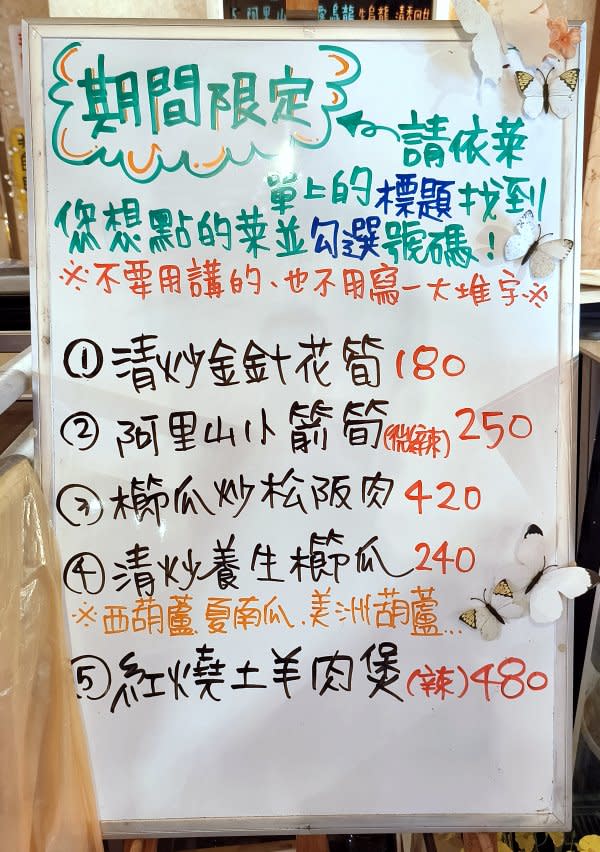 期間限定
請依菜
單上的標題找到
您想點的菜並勾選號碼！
※不要用講的、也不用寫一大堆字※
① 清炒金針花筍 180
② 阿里山小箭筍(微辣) 250
③ 櫛瓜炒松阪肉 420
④ 清炒養生櫛瓜 240
※西葫蘆.夏南瓜.美洲葫蘆...
⑤ 紅燒土羊肉煲(辣) 480